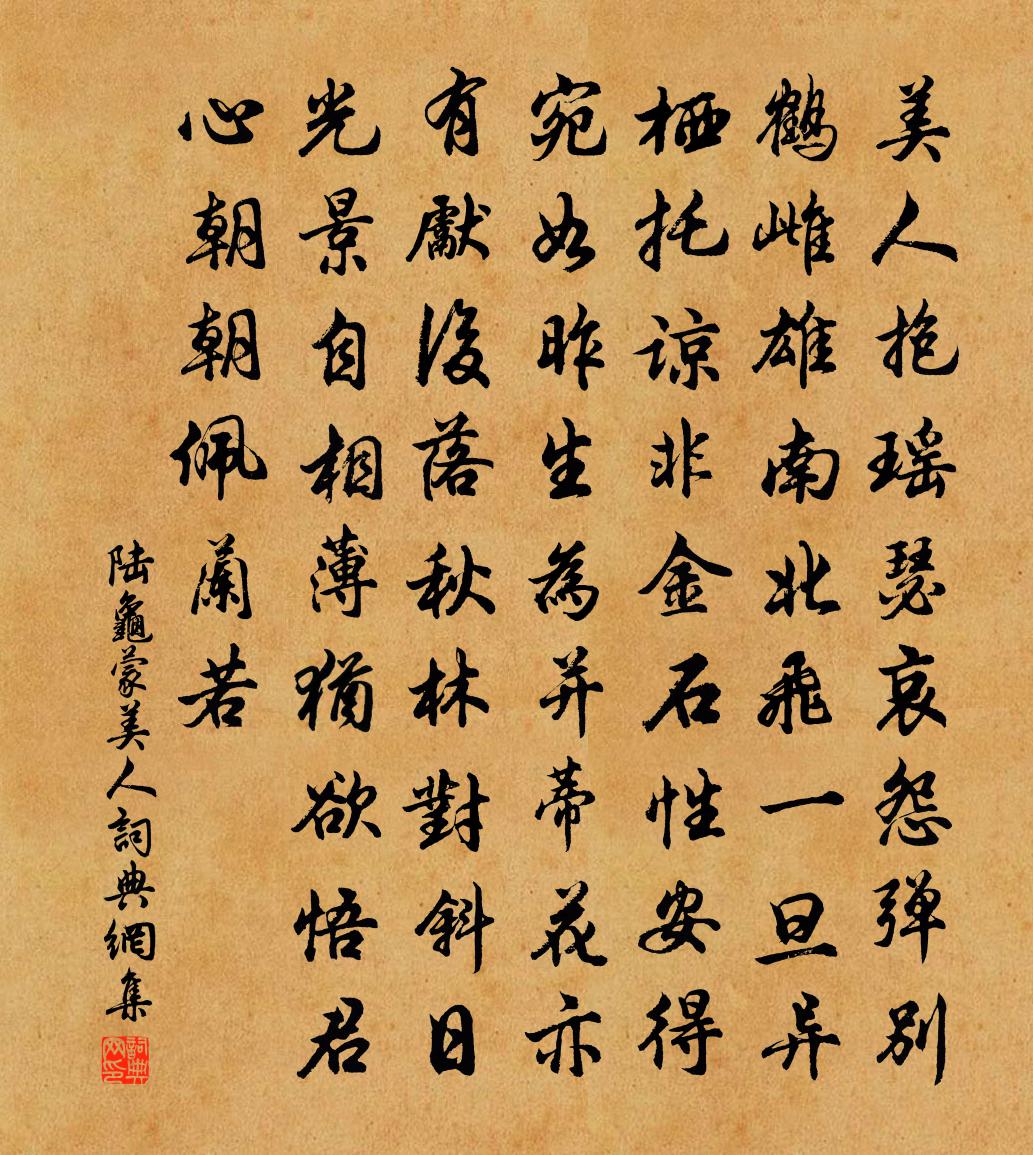 美人抱瑶瑟哀怨弹别
鹤雌雄南北飞一旦异
栖托谅非金石性安得
宛如昨生为并蒂花亦
有獻後落秋林對斜日
光景自相薄猶欲悟君
心朝朝佩蘭若
陆龜蒙美人詞典網集
詞典网印